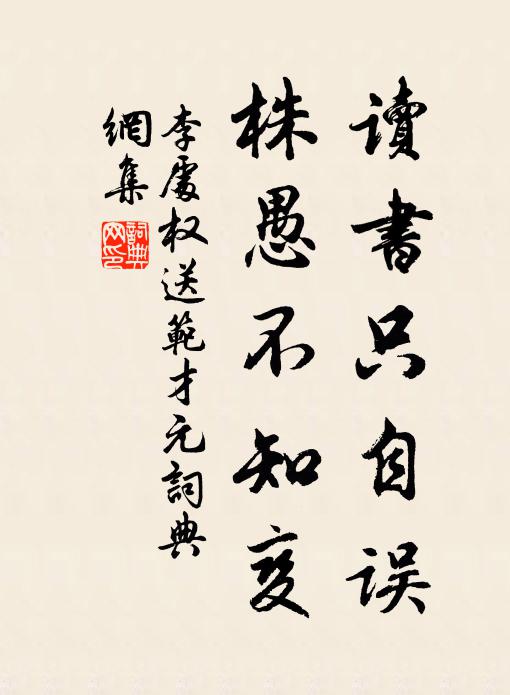 讀書只自误
株愚不知变
李處权送範才元詞典
網集
詞典网印